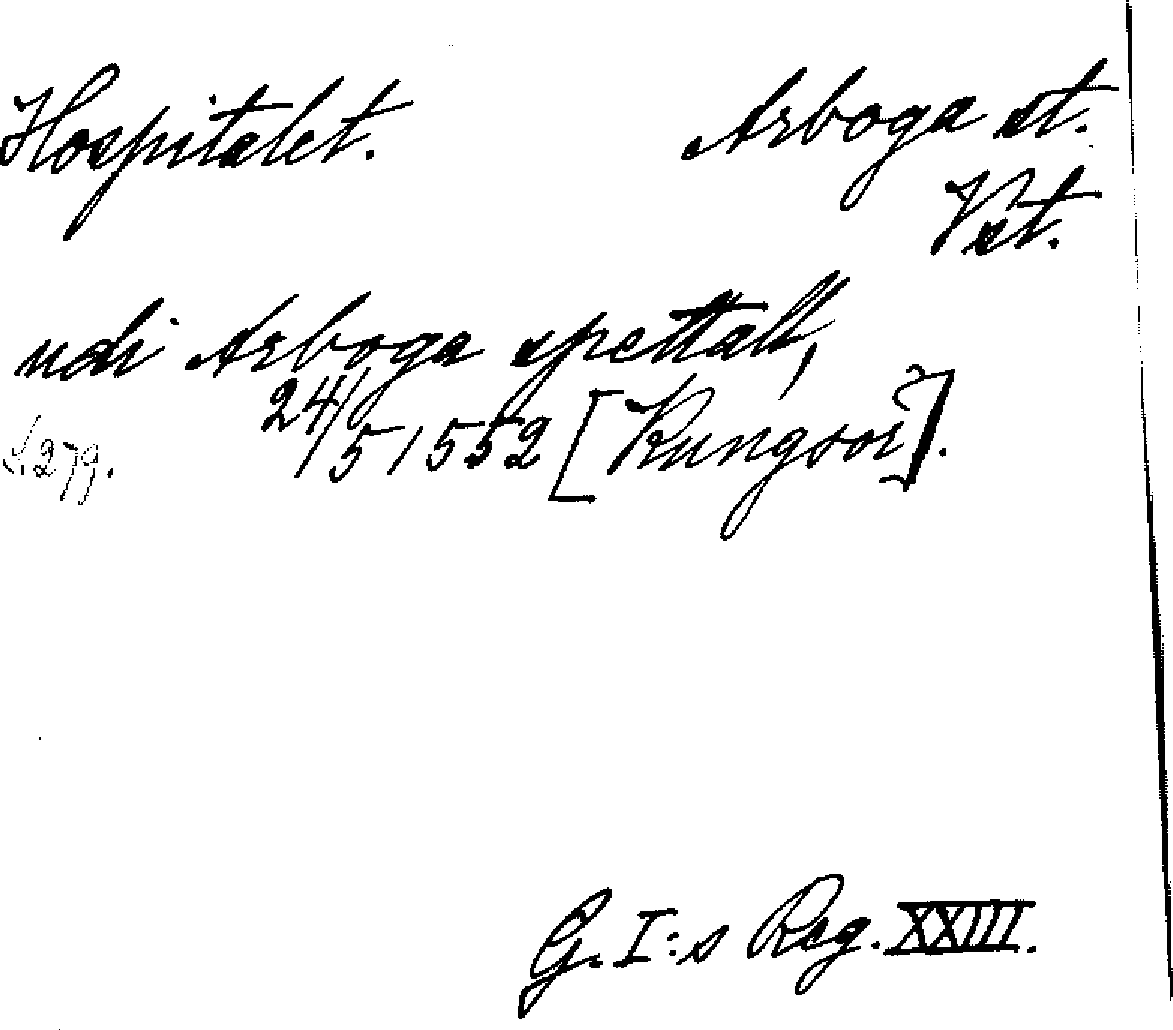 Hospitalet. Arboga st.
Vst.
udi Arboga spettall,
24/5 1552 [Kungsör].
s. 279.
G. I:s Reg. XXIII.